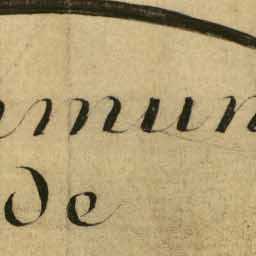 mmun
de